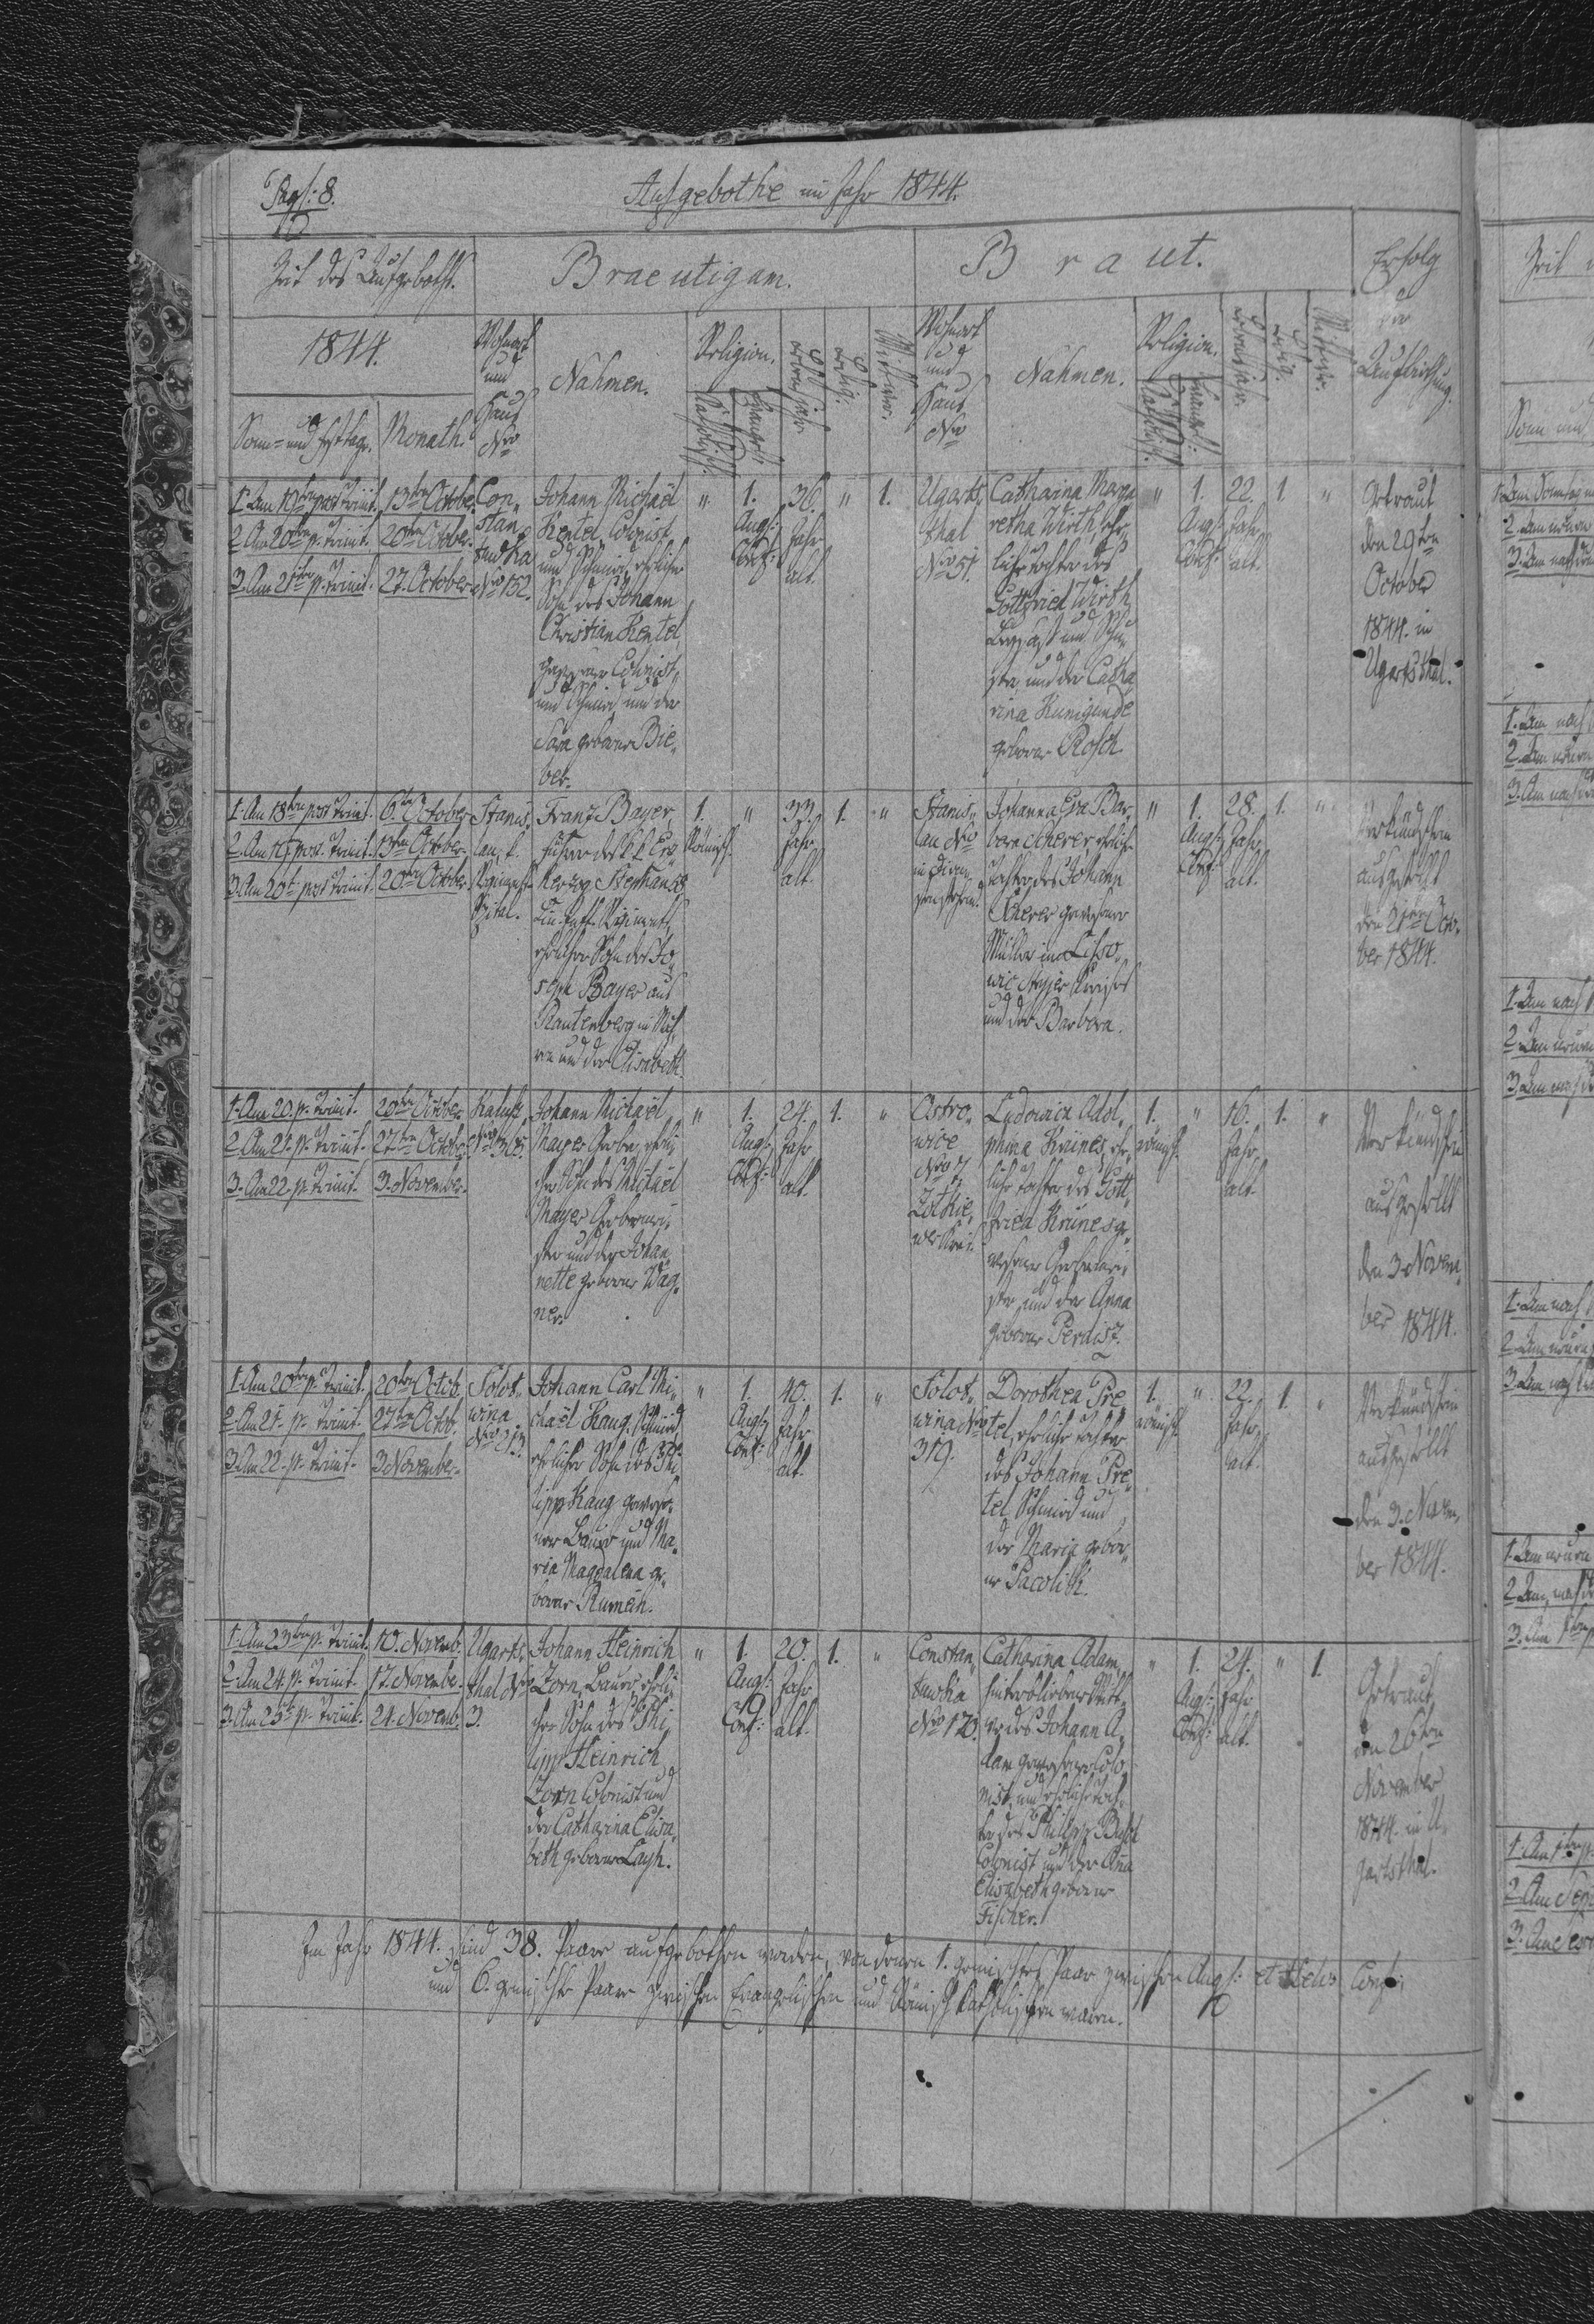 Pag: 8.
Aufgebothe im Jahr 1844.
Zeit des Aufgeboths.
Braeutigam.
Braut.
Erfolg der Aufbiethung.
1844.
Sonn= und Festtage.
Monath.
Wohnort und Haus Nro
Nahmen.
Religion.
Katholisch.
Evangel:
Lebensjahr.
Ledig.
Wittwer.
Wohnort und Haus Nro
Nahmen.
Religion.
Katholisch.
Evangel:
Lebensjahr.
Ledig.
Wittwe.
1. Am 19ten post Trinit.
2. Am 20ten p. Trinit.
3. Am 21ten p. Trinit.
13ten October.
20ten October.
27. October.
Con„
stan„
tinufka
Nro 152.
Johann Michaël
Kentel, Colonist
und Schmied, ehelicher
Sohn des Johann
Christian Kentel
gewesener Colonist
und Schmied und der
Sara geborner Bie„
ber.
„
1.
Augs:
Conf:
36.
Jahr
alt.
„
1.
Ugarts„
thal
Nro 51.
Catharina Marga„
retha Wirth, ehe„
liche Tochter des
Gottfried Wirth
und der Catha„
rina Kunigunde
geborne Rosch.
„
1.
Augs:
Conf:
22.
Jahr
alt.
1.
„
Getraut
den 29ten
October
1844. in
Ugartsthal.
1. Am 18ten post Trinit.
2. Am 19. post. Trinit.
3. Am 20t. post Trinit.
6ten October
13ten October.
20ten October.
Stanis„
lau, k.
Regiments
Spital.
Franz Bayer,
Führer des k. k. Erz„
herzog Stephan 58
Lin. Inft. Regiments,
ehelicher Sohn des Jo„
seph Bayer aus
Rautenberg in Mäh„
ren und der Elisabeth.
1.
Römisch.
„
33.
Jahr
alt.
1.
„
Stanis„
lau Nro
Johanna Eva Bar„
bara Scherer eheliche
Tochter des Johann
Scherer gewesener
Müller in
Stryjer Kreises
und der Barbara.
„
1.
Augs:
Conf:
28.
Jahr
alt.
1.
„
Verkündschein
ausgestellt
den 21ten Octo„
ber 1844.
1. Am 20. p. Trinit.
2. Am 21. p. Trinit.
3. Am 22. p. Trinit.
20ten October
27ten October.
3. November.
Kalusz
Nro 368.
Johann Michaël
Mayer Gerber, eheli„
cher Sohn des Michaël
Mayer Gerbermei„
ster und der Johan„
nette geborne Wag„
ner.
„
1.
Augs:
Conf:
24.
Jahr
alt.
1.
„
Ostro„
wice
Nro 97
Zolkie„
wer Kreis
Ludowica Adol„
phina Krünes, ehe„
liche Tochter des Gott„
fried Krünes ge„
wesener Gerbermei„
ster und der Anna
geborne Pernisz.
1.
römisch.
„
16.
Jahr
alt.
1.
„
Verkündschein
ausgestellt
den 3. Novem„
ber 1844.
1. Am 20ten p. Trinit.
2. Am 21. p. Trinit.
3. Am 22. p. Trinit.
20ten Octob.
27ten Octob.
3. November.
Solot„
wina
Nro 213.
Johann Carl Mi„
chaël Kaug, Schmied
ehelicher Sohn des Phi„
lipp Kaug gewese„
ner Bauer und Ma„
ria Magdalena ge„
borne Rumein.
„
1.
Augs:
Conf:
40.
Jahr
alt.
1.
„
Solot„
wina Nro
319.
Dorothea Pre„
tel, eheliche Tochter
des Johann Pre„
tel Schmied und
der Maria gebor„
ne Pacolik.
1.
römisch
„
22.
Jahr
alt.
1.
„
Verkündschein
ausgestellt
den 3. Novem„
ber 1844.
1. Am 23ten p. Trinit.
2. Am 24. p. Trinit.
3. Am 25t. p. Trinit.
10. Novemb.
17. November.
24. Novemb.
Ugarts„
thal Nro
3.
Johann Heinrich
Zorn, Bauer, eheli„
cher Sohn des Phi„
lipp Heinrich
Zorn Colonist und
der Catharina Elisa„
beth geborne Layh.
„
1.
Augs:
Conf:
20.
Jahr
alt.
1.
„
Constan„
tinufka
Nro 120.
Catharina Adam,
hinterbliebene Witt„
we des Johann A„
dam gewesener Colo„
nist, und eheliche Toch„
ter des Philipp Busch
Colonist und der Anna
Elisabeth geborne
Fischer.
„
1.
Augs:
Conf:
24.
Jahr
alt.
„
1.
Getraut
den 26ten
November
1844. in U„
gartsthal.
Im Jahr 1844. sind 38. Paare aufgebothen worden, von denen 1. gemischtes Paar zwischen Augs: et Helv: Conf:
und 6. gemischte Paare zwischen Evangelischen und Römisch Katholischen waren.